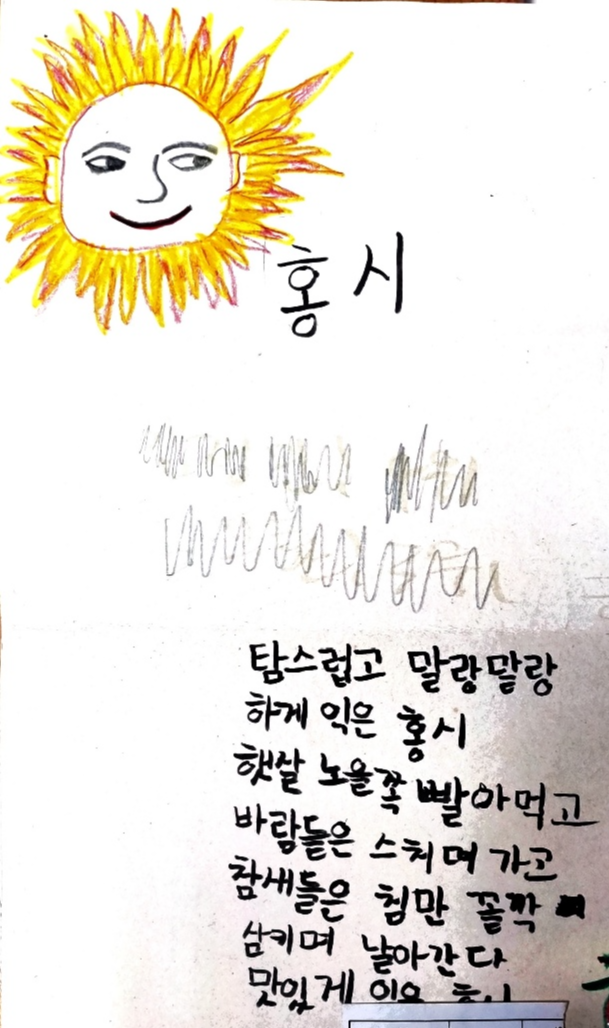 홍시
탐스럽고 말랑말랑
하게 익은 홍시
햇살 노을쪽 빨아먹고
바람들은 스치며 가고
참새들은 침만 꼴깍
삼키며 날아간다
맛있게